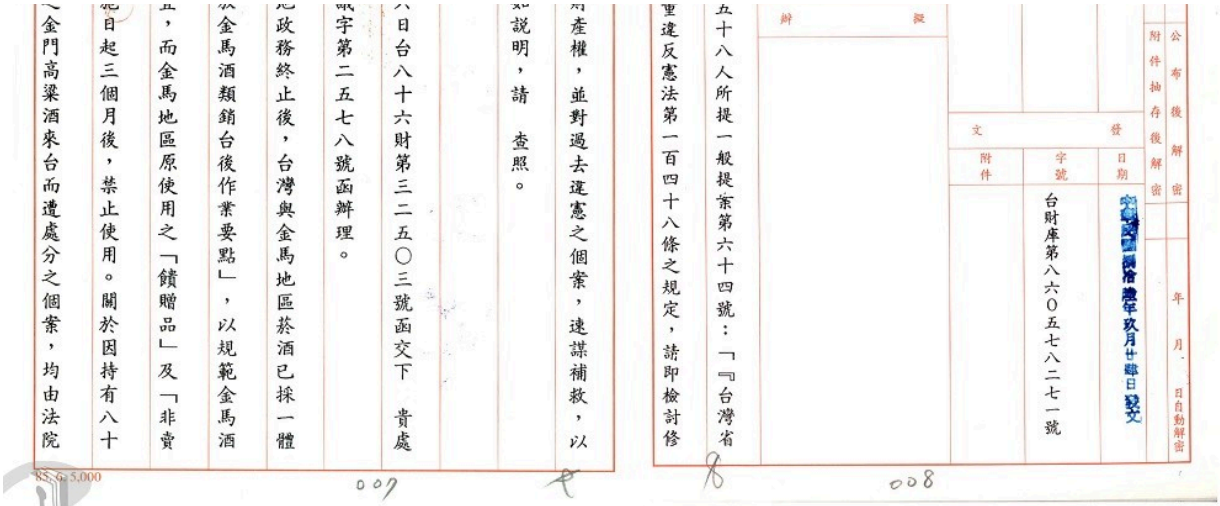 公布後解密
附件抽存後解密
年 月 日自動解密
發文
日期
中華民國捌拾陸年玖月廿肆日發文
字號
台財庫第八六0五七八二七一號
附件
擬辦
五十八人所提一般提案第六十四號：「『台灣省
重違反憲法第一百四十八條之規定，請即檢討修
008
財產權，並對過去違憲之個案，速謀補救，以
如說明，請 查照。
六日台八十六財第三二五○三號函交下 貴處
議字第二五七八號函辦理。
地政務終止後，台灣與金馬地區菸酒已採一體
放金馬酒類銷台後作業要點」，以規範金馬酒
宜，而金馬地區原使用之「饋贈品」及「非賣
施日起三個月後，禁止使用。關於因持有八十
之金門高粱酒來台而遭處分之個案，均由法院
85. 6. 5,000
007